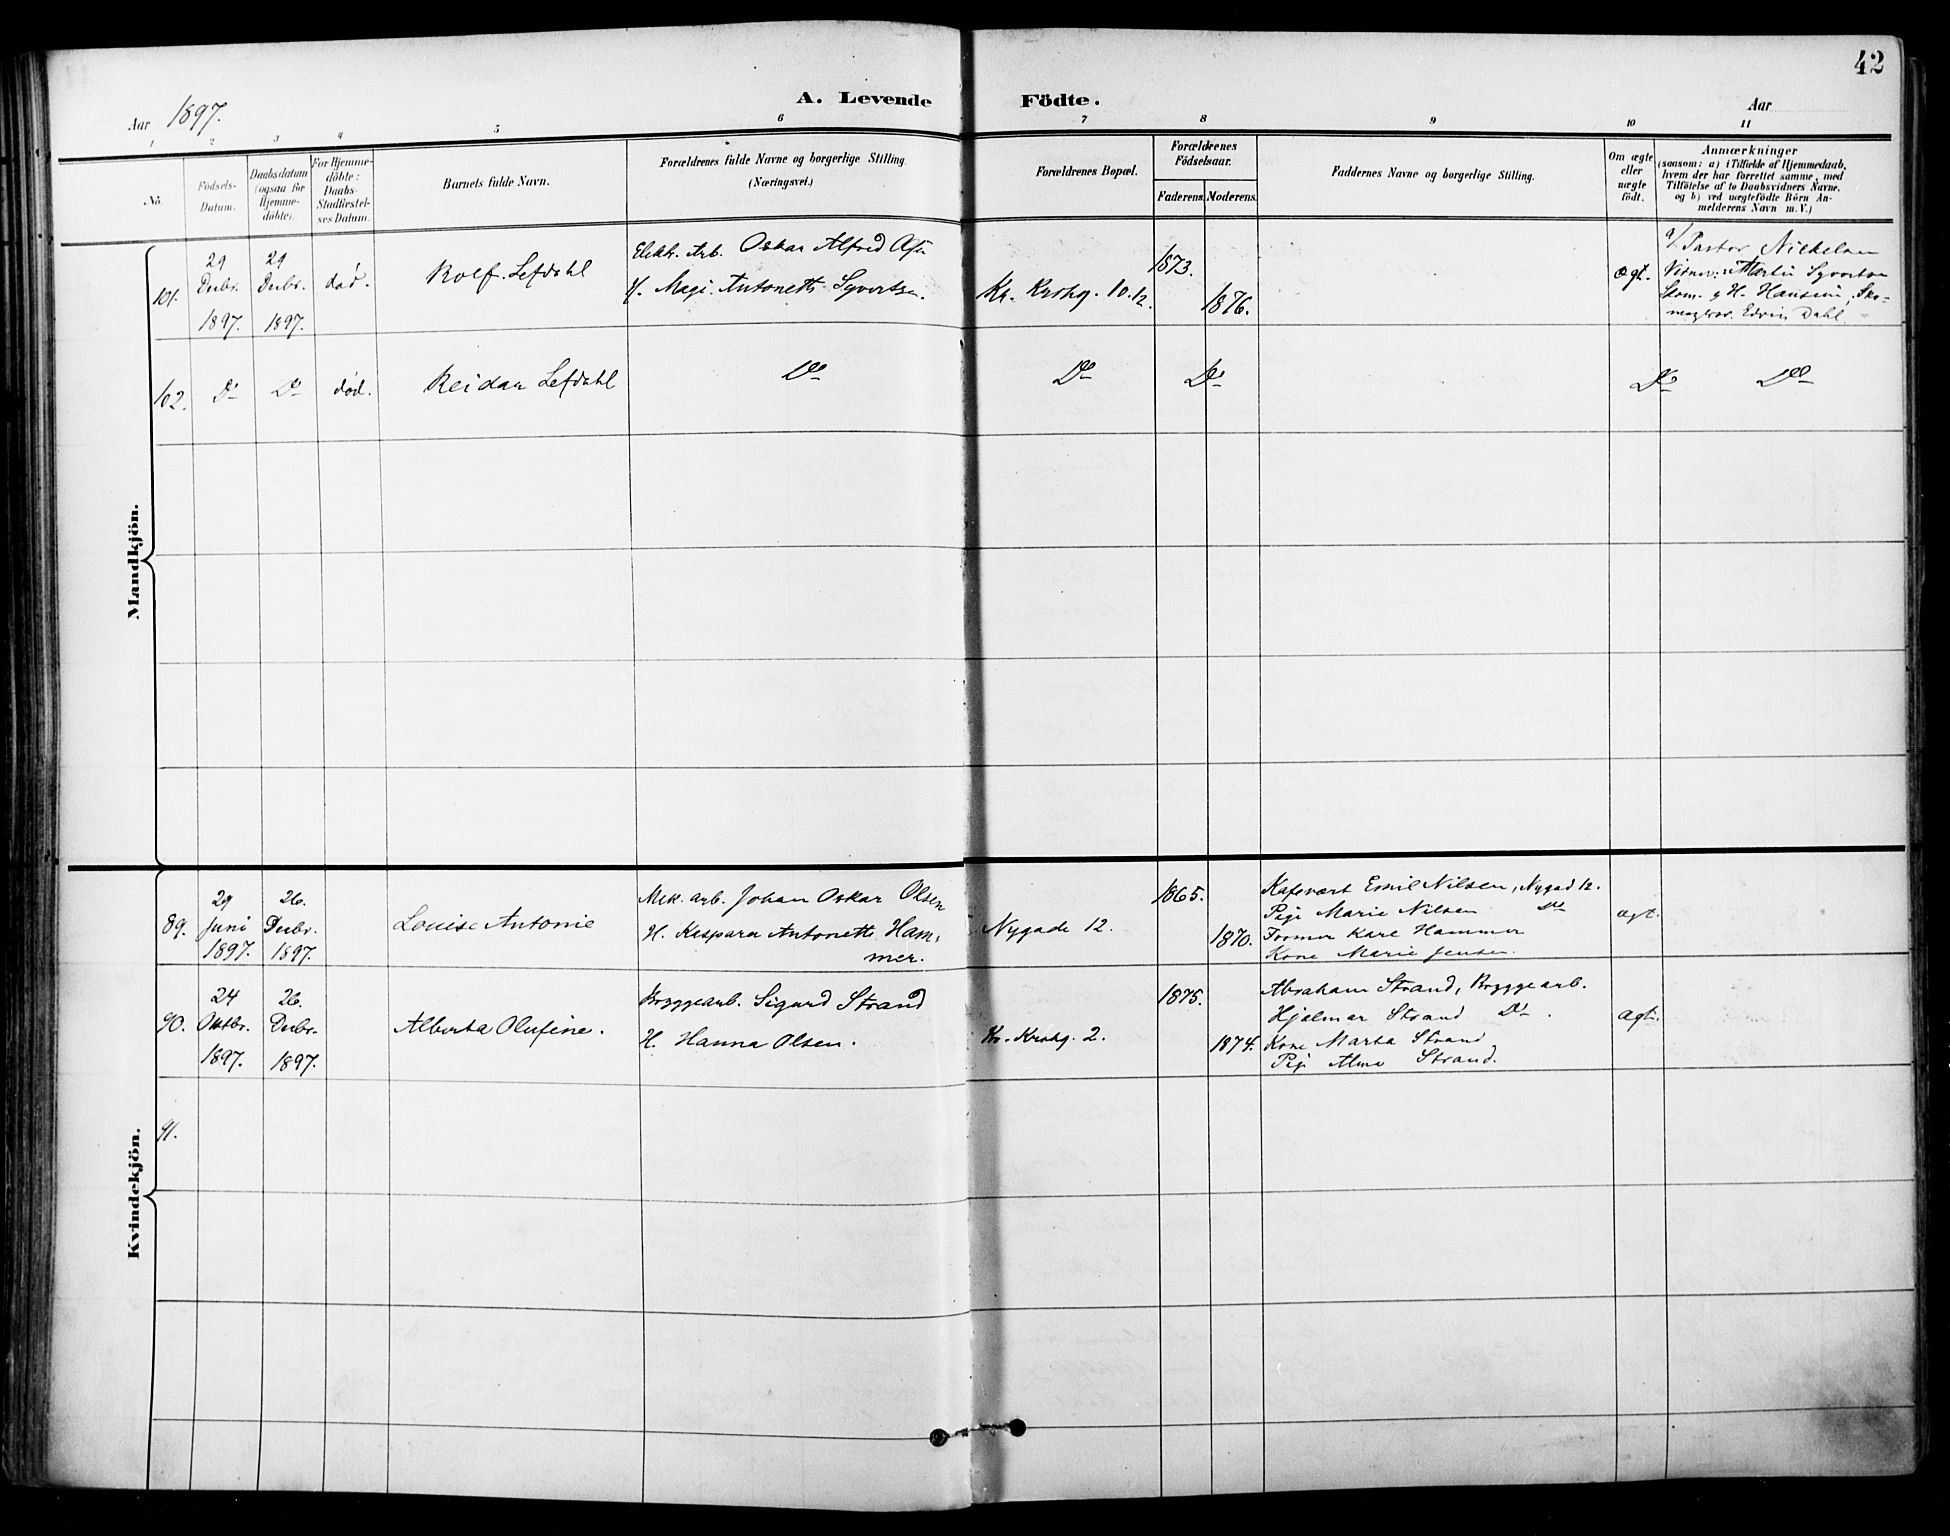 42
A. Levende Födte.
Aar 1897.
Aar
1 2 3 4 5 6 7 8 9 10 11
No.
Födsels-
Datum.
Daabsdatum
(ogsaa for
Hjemme-
döbte).
For Hjemme-
döbte:
Daabs-
Stadfæstel-
ses Datum.
Barnets fulde Navn.
Forældrenes fulde Navne og borgerlige Stilling.
(Næringsvei.)
Forældrenes Bopæl.
Forældrenes
Födselsaar.
Faderens. Moderens.
Faddernes Navne og borgerlige Stilling.
Om ægte
eller
uægte
født.
Anmærkninger
(saasom: a) i Tilfælde af Hjemmedaab,
hvem der har forrettet samme, med
Tilföielse af to Daabsvidners Navne.
og b) ved uægtefödte Börn An-
melderens Navn m. V.)
Mandkjön.
101.
29
Decbr.
1897.
29
Decbr.
1897.
død.
Rolf Lefdahl
Elektr. Arb. Oskar Alfred
H. Magi. Antonette Syvertsen.
Kr. Krohg. 10.12.
1873.
1876.
ægt.
a/ Pastor Nickelsen
Vidner: Martin Syvertsen
Skom. g H. Hansen, Sko-
mager. Edvin Dahl.
102.
Do
Do
død.
Reidar Lefdahl
Do
Do
Do
Do
Do
Kvindekjön.
89.
29
Juni
1897.
26.
Decbr.
1897.
Louise Antonie
Mek. arb. Johan Oskar Olsen
H. Kaspara Antonette Ham-
mer.
Nygade 12.
1865.
1870.
Kafevært Emil Nilsen, Nygad 12.
Pige Marie Nilsen Do
Former Karl Hammer
Kone Marie Jensen.
ægt.
90.
24
Oktbr.
1897.
26.
Decbr.
1897.
Alberta Olufine.
Bryggearb. Sigurd Strand
H. Hanna Olsen.
Kr. Krohg. 2.
1875.
1874.
Abraham Strand, Bryggearb.
Hjalmar Strand Do.
Kone Marta Strand
Pige Alma Strand.
ægt.
91.